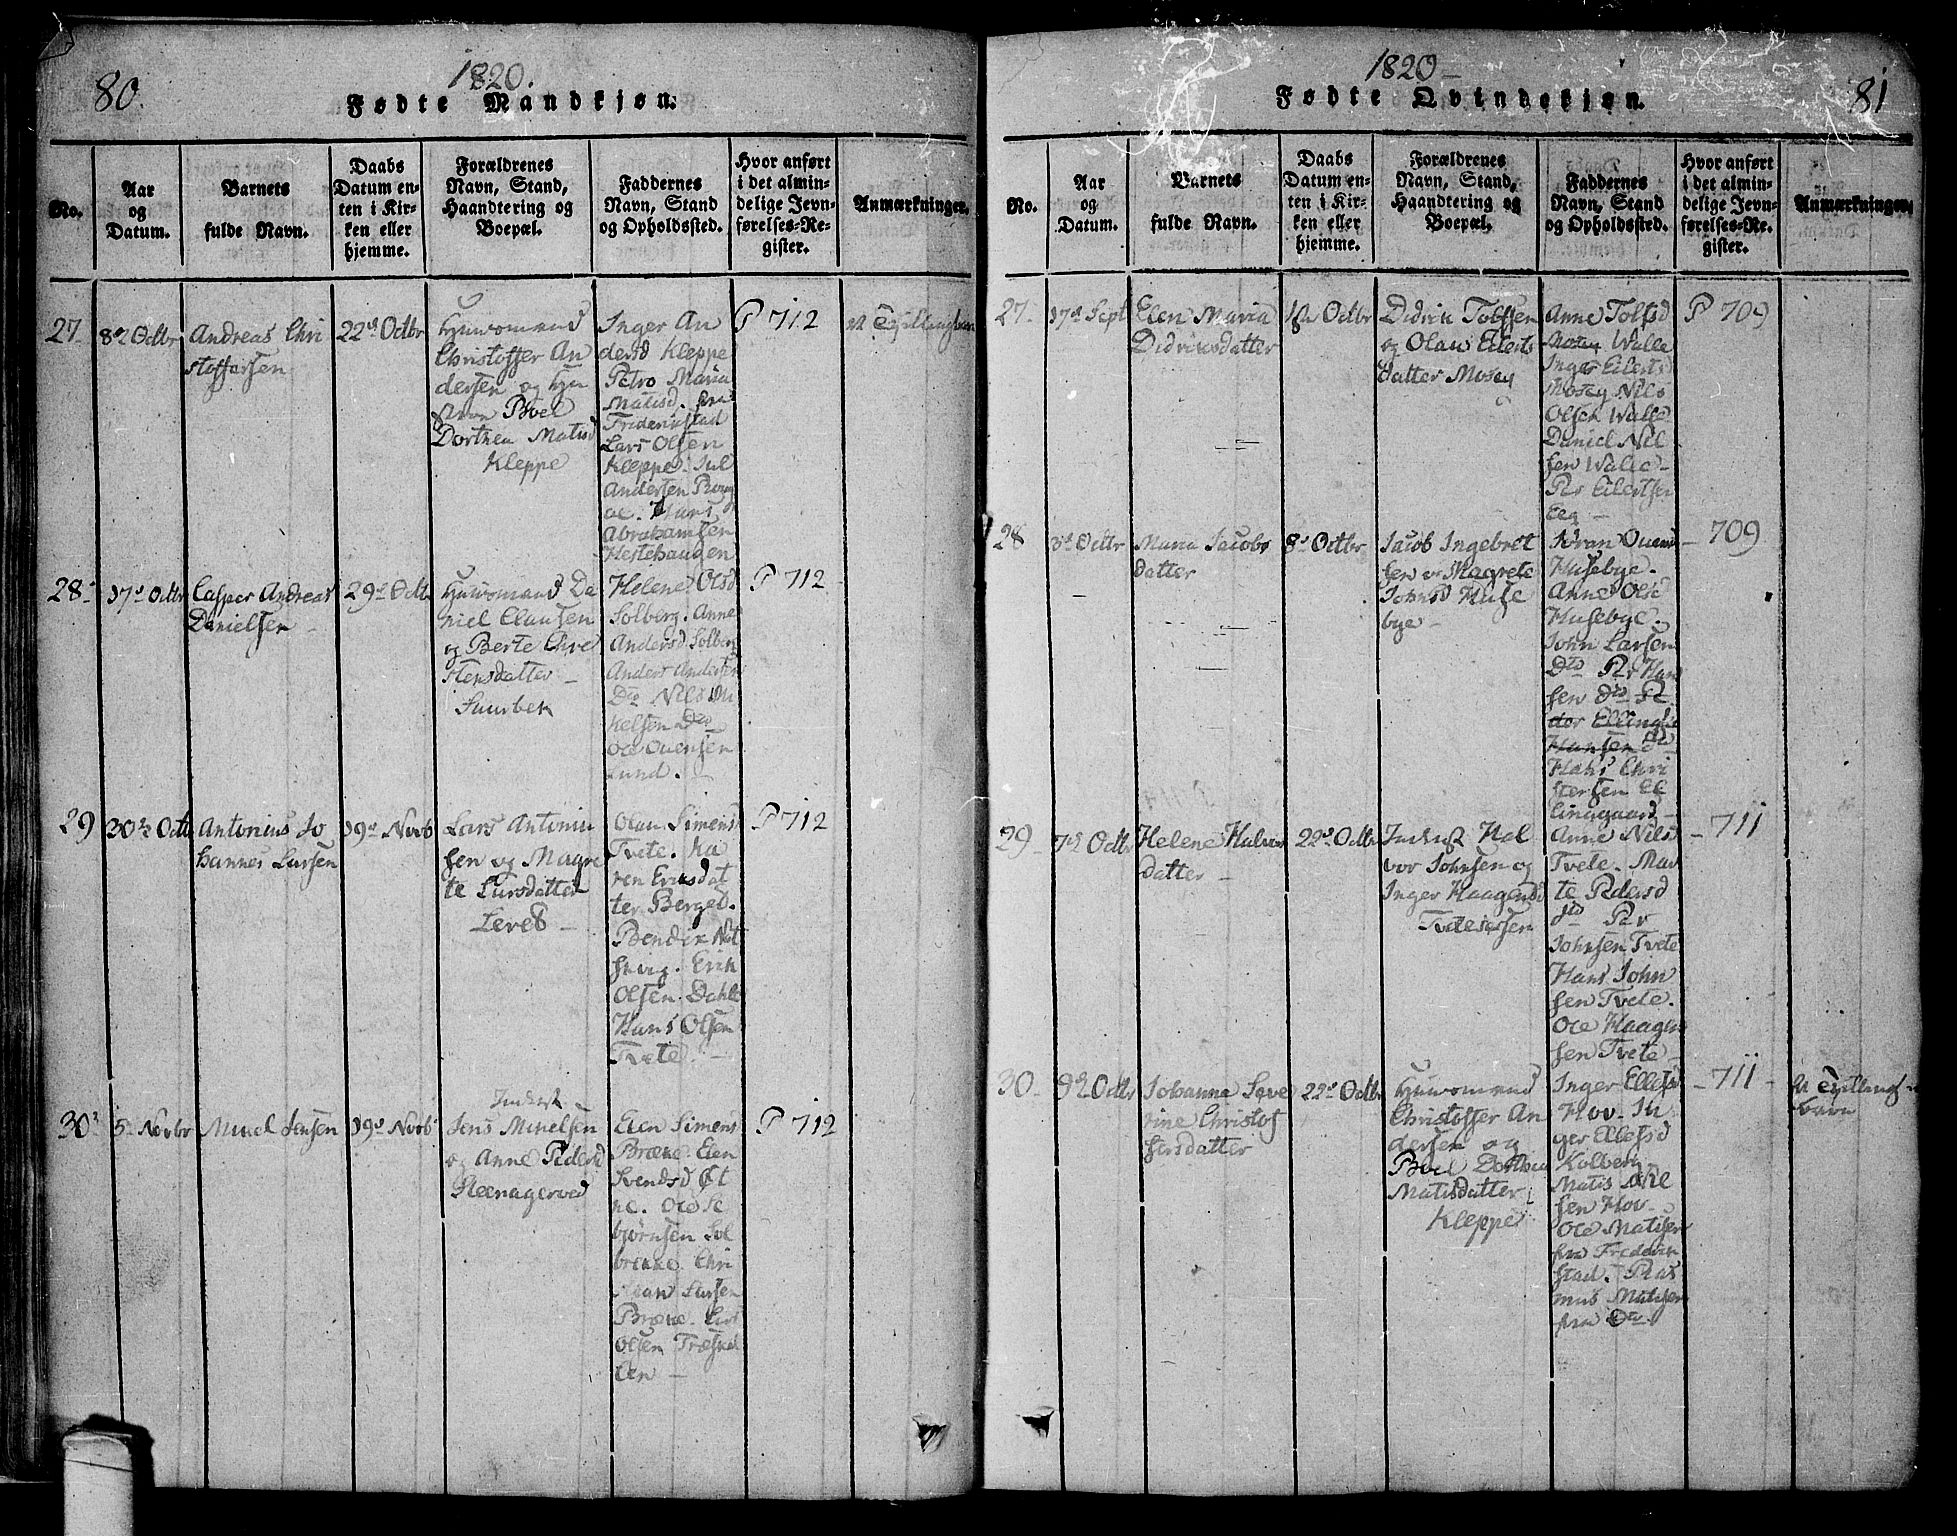 80.
1820.
Fødte Mandkjøn.
No.
Aar
og
Datum.
Barnets
fulde Navn.
Daabs
Datum en-
ten i Kir-
ken eller
hjemme.
Forældrenes
Navn, Stand,
Haandtering og
Boepæl.
Faddernes
Navn, Stand
og Opholdssted.
Hvor anført
i det almin-
delige Jevn-
førelses-Re-
gister.
Anmærkninger.
27
8de Octbr
Andreas Chri
stoffersen
22de Octbr
Huusmand
Christoffer An
dersen og Hu
Boel
Dorthea Matisd
Kleppe
Inger An
dersd Kleppe
Petro Maria
Matisd. fra
Friderikstad
Lars Olsen
Kleppe. Jul
Andersen
Hans
Abrahamsen
Hestehaugen
P 712
28
17d Octbr
Casper Andreas
Danielsen
29de Octbr
Huusmand Da
niel Clausen
og Berte Chre
stensdatter
Suurbek
Helene Olsd
Solberg. Anne
Andersd Solberg
Anders Andersen
Do Nils Mi
kelsen Do
Ole Ouensen
Lund.
P 712
29
30te Octb
Antonius Jo
hannes Larsen
19de Novb
Lars Antoniu
sen og Magre
te Larsdatter
Olau Simensd
Tvete. Ka
ren Eriksdat
ter Berged.
Bendix Not
Erik
Olsen Dahle
Hans Olsen
Tvete.
P 712
30
5te Novbr
Mikel Jensen
19d Novb
Inderst
Jens Mikelsen
og Anne Pedersd
Steenagerved
Elen Simens
Brække Elen
Svendsd Øst
Ole Se
bjørnsen Sol
brække Chri
stian Larsen
Brække
Olsen Træskel
len
P 712
1820
81
Fødte Qvindekjøn.
No.
Aar
og
Datum.
Barnets
fulde Navn.
Daabs
Datum en-
ten i Kir-
ken eller
hjemme.
Forældrenes
Navn, Stand,
Haandtering og
Boepæl.
Faddernes
Navn, Stand
og Opholdssted.
Hvor anført
i det almin-
delige Jevn-
førelses-Re-
gister.
Anmærkninger.
27
17d Sept
Elen Maria
Didriksdatter
1de Octbr
Didrik Tolfsen
og Olau Eilerts
datter Mosey
Anne Tolfsd
Walle
Inger Eilertsd
Mosey Nils
Olsen Walle
Daniel Nil
sen Walle
Per Eilertsen
Eeg
P 709
28
3d Octbr
Maria Jacobs
datter
8de Octbr
Jacob Ingebret
sen og Magrete
Johnsd Huse
bye
Jøran Ouensd
Husebye.
Anne Olsd
Husebye.
John Larsen
Dto Per Han
sen dto
Hansen
Hans Chri
stensen El
lingaard
709
29
7de Octbr
Helene Halvors
datter
22de Octbr
Inderst Hal
vor Johnsen og
Inger Haagensd
Anne Nilsd
Tvete. Mar
te Pedersd
dto Per
Johnsen Tvete
Hans John
sen Tvete.
Ole Haagen
sen Tvete
711
30
8de Octbr
Johanna Seve
rine Christof
fersdatter
22de Octbr
Huusmand
Christoffer An
dersen og
Boel Dorthea
Matisdatter
Kleppe
Inger Ellefsd
Hov. In
ger Ellefsd
Kolberg
Matis Nil
sen Hov
Ole Matisen
fra Frederik
stad. Ras
mus Matisen
fra Do
711